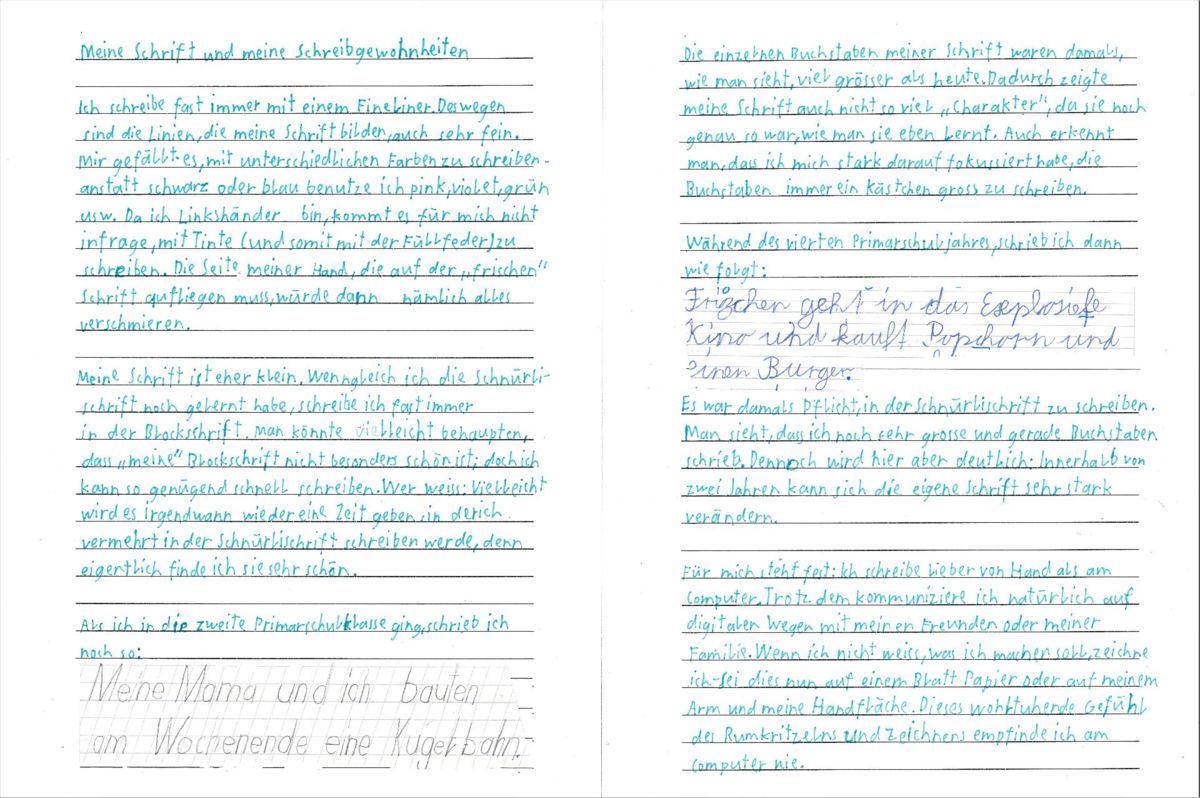 Meine Schrift und meine Schreibgewohnheiten
Ich schreibe fast immer mit einem Fineliner. Deswegen
sind die Linien, die meine Schrift bilden, auch sehr fein.
Mir gefällt es, mit unterschiedlichen Farben zu schreiben -
anstatt schwarz oder blau benutze ich pink, violet, grün
usw. Da ich Linkshänder bin, kommt es für mich nicht
infrage, mit Tinte (und somit mit der Füllfeder) zu
schreiben. Die Seite meiner Hand, die auf der „frischen"
Schrift aufliegen muss, würde dann nämlich alles
verschmieren.
Meine Schrift ist eher klein. Wenngleich ich die Schnürli-
schrift noch gelernt habe, schreibe ich fast immer
in der Blockschrift. Man könnte vielleicht behaupten,
dass „meine" Blockschrift nicht besonders schön ist; doch ich
kann so genügend schnell schreiben. Wer weiss: Vielleicht
wird es irgendwann wieder eine Zeit geben, in der ich
vermehrt in der Schnürlischrift schreiben werde, denn
eigentlich finde ich sie sehr schön.
Als ich in die zweite Primarschulklasse ging, schrieb ich
noch so:
Meine Mama und ich bauten
am Wochenende eine Kugelbahn.
Die einzelnen Buchstaben meiner Schrift waren damals,
wie man sieht, viel grösser als heute. Dadurch zeigte
meine Schrift auch nicht so viel „Charakter", da sie noch
genau so war, wie man sie eben lernt. Auch erkennt
man, dass ich mich stark darauf fokussiert habe, die
Buchstaben immer ein Kästchen gross zu schreiben.
Während des vierten Primarschuljahres, schrieb ich dann
wie folgt:
Frizchen geht in das Explosiefe
Kino und kauft Popchorn und
einen Burger.
Es war damals Pflicht, in der Schnürlischrift zu schreiben.
Man sieht, dass ich noch sehr grosse und gerade Buchstaben
schrieb. Dennoch wird hier aber deutlich: Innerhalb von
zwei Jahren kann sich die eigene Schrift sehr stark
verändern.
Für mich steht fest: Ich schreibe lieber von Hand als am
Computer. Trotz dem kommuniziere ich natürlich auf
digitalen Wegen mit meinen Freunden oder meiner
Familie. Wenn ich nicht weiss, was ich machen soll, zeichne
ich - sei dies nun auf einem Blatt Papier oder auf meinem
Arm und meine Handfläche. Dieses wohltuhende Gefühl
des Rumkritzelns und Zeichnens empfinde ich am
Computer nie.